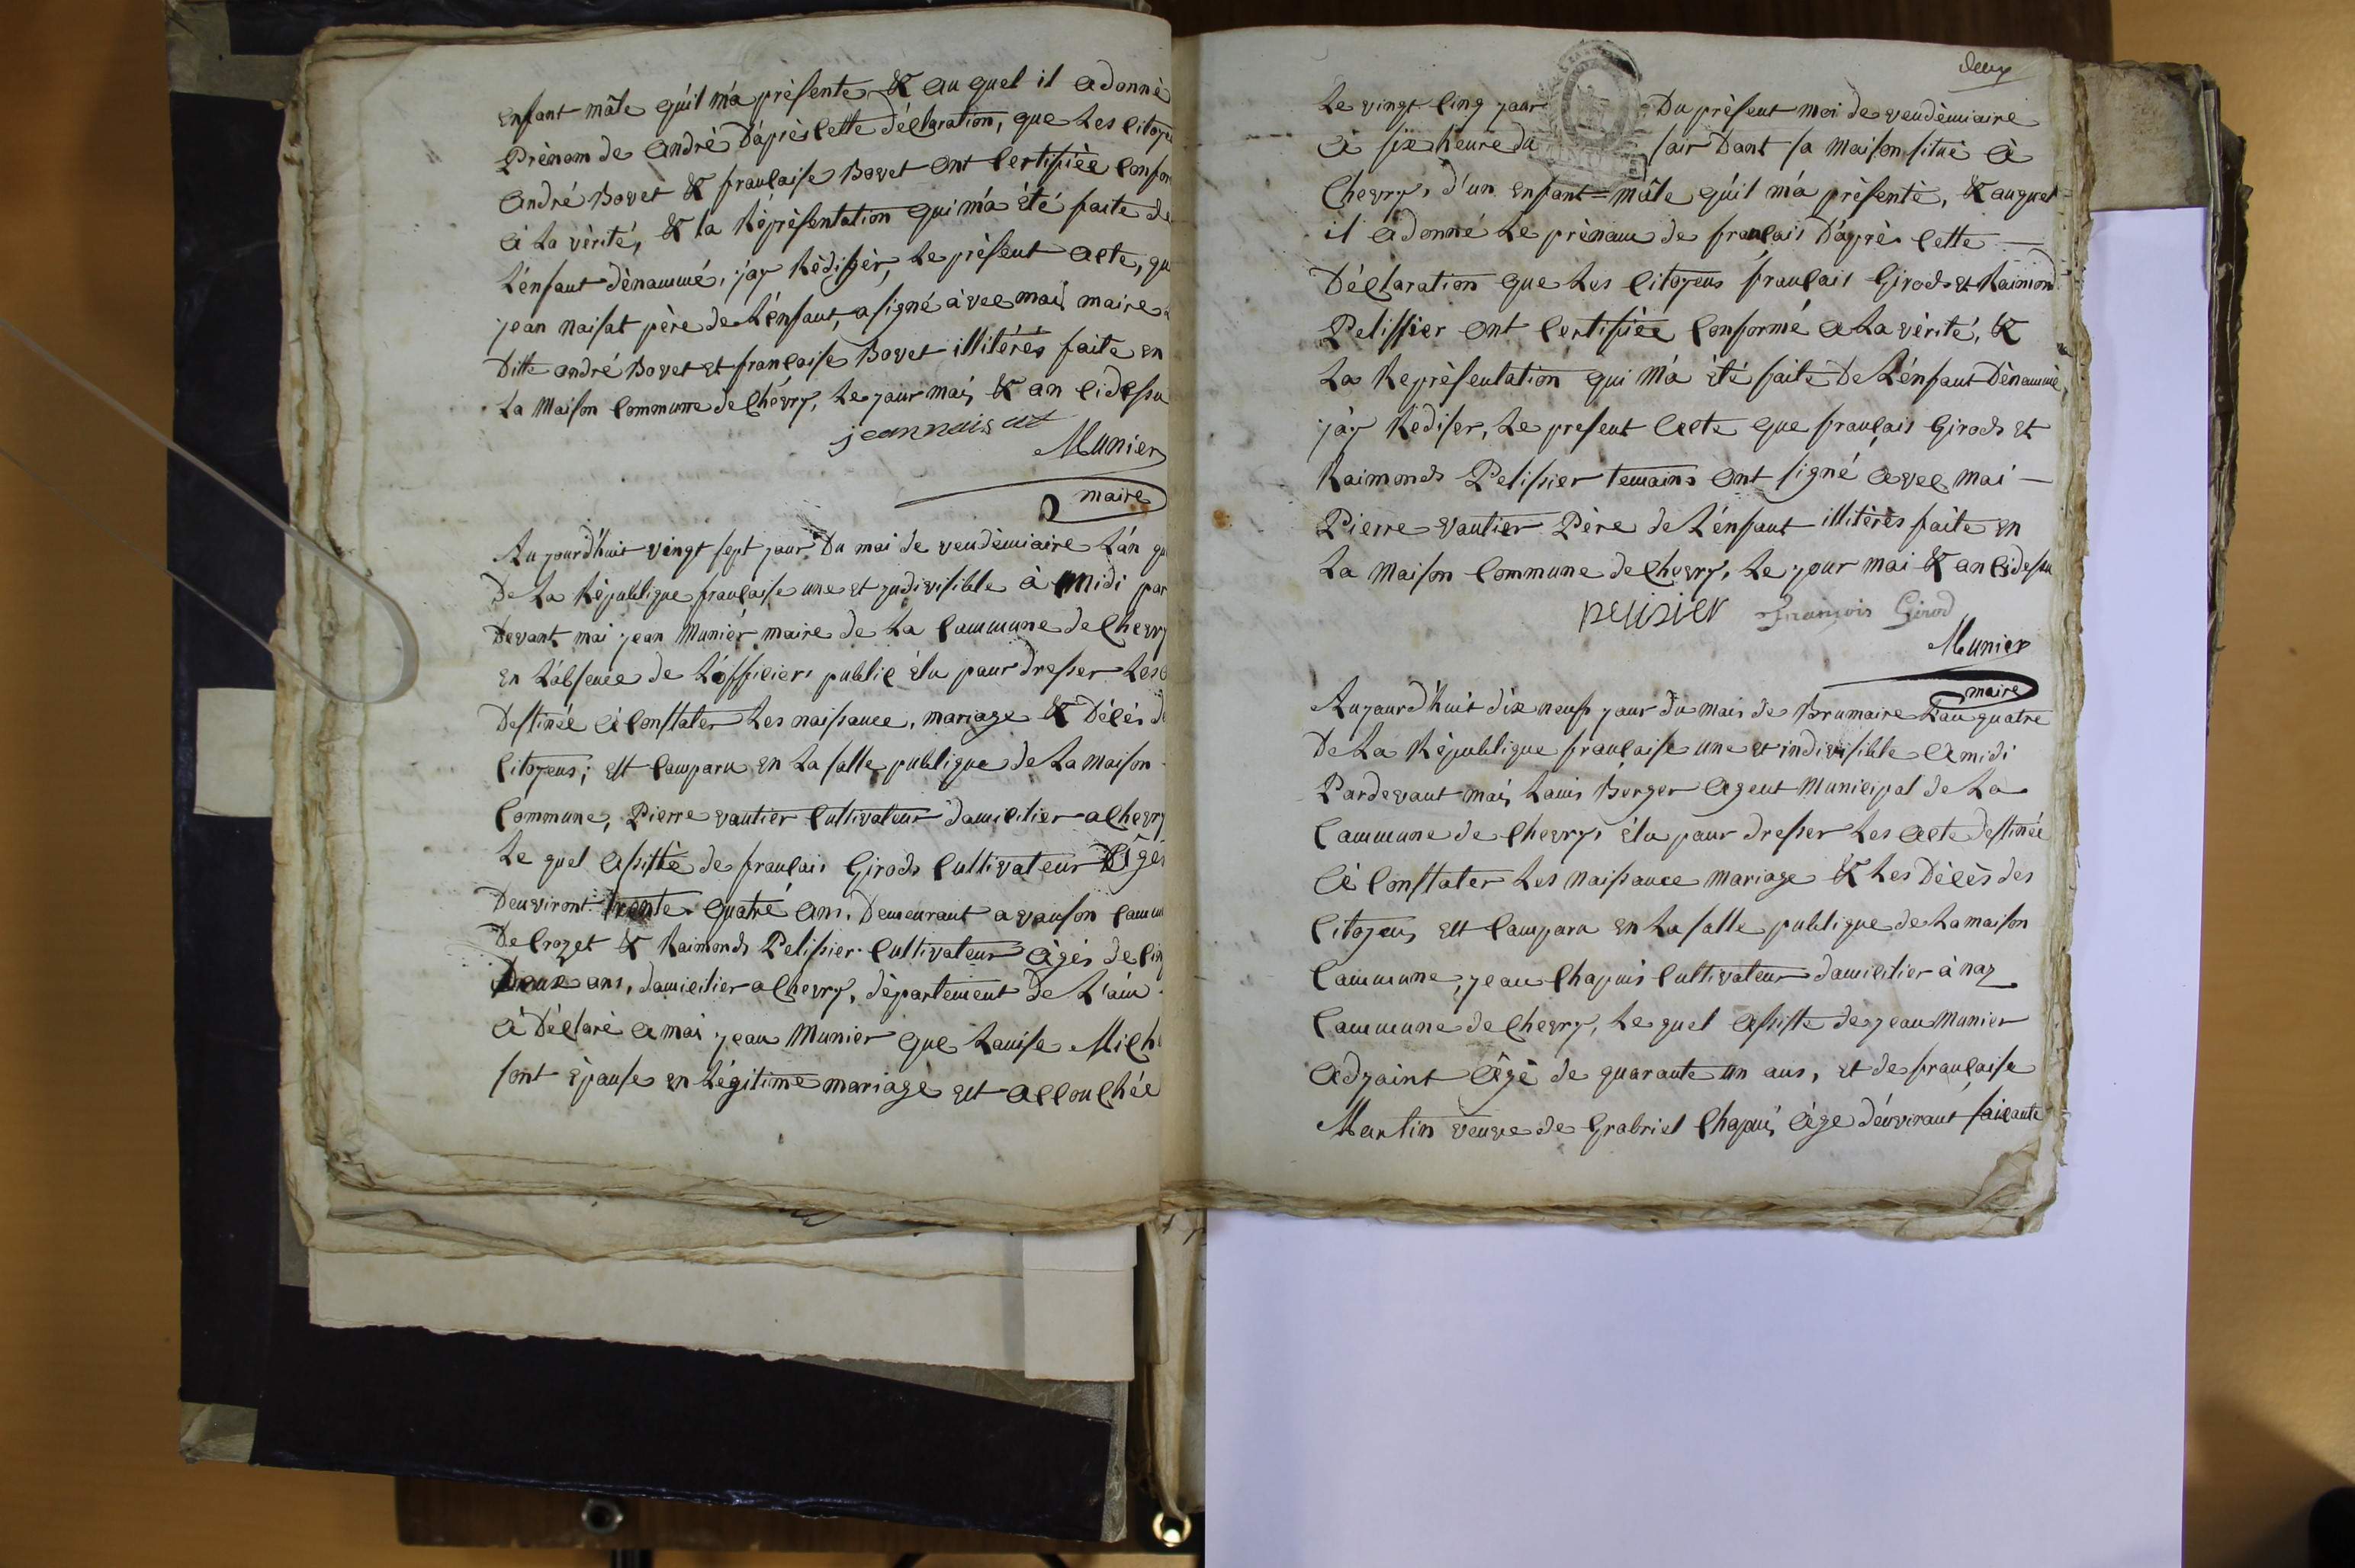 enfant mâle qu'il m'a présente & au quel il a donné
Prénom de andré D'après cette déclaration, que Les citoye
André Bovet & francaise Bovet ont certifiée confor
à La vérité, & la Réprésentation qui m'a été faite de
L'énfant dénammé, j'ay Rédigér, Le présent acte, qu
jean naisat père de L'énfant, a signé àvec mai maire
Ditte andré Bovet et francaise Bovet illitérés faite en
La Maison Commune de Chévry, Le jaur mai & an cidessu
jeannaisat
Munier
maire
Aujourd'huit vingt sept jaur Du mai de vendémiaire L'án qu
De La République francaise une et jndivisible à Midi par
Devant mai jean Muniér maire de La Cammune de Chevry
en L'absence de L'officiers public élu paur dresser Les
Destinée à Constater Les naissance, mariage & Décés de
Citoyens; est camparu en La salle publique de La Maison
Commune, Pierre vautier Cultivateur damicilier a Chevry
Le quel assisté de francais Girods Cultivateur âgés
Denviront trente quatré ans. Demeurant a vauson Camm
De Crozet & Raimonds Pelissier Cultivateur âgés de cin
Deux ans, damicilier a Chevry, département de L'ain
à Déclaré a mai jean Munier que Lauise Mich
sont épause en Légitime mariagé est accouchée
deux
Le vingt Cinq jaur Du présent moi de vendémiaire
à six heure du sair Dant sa Maison situé à
Chevry, d'un enfant = mâle qu'il m'a présenté, & auquel
il adonné Le prénam de francais D'aprè cette
Déclaration que Les Citoyens francais Girods et Raimond
Pelissier ont certifiée Conformé a La vérité, &
La Représentation qui M'a été faite De L'énfant Dénammé,
j'ay Rediser, Le present acte que francais Girods et
Raimonds Pelissier temains ont signé avec Mai
Pierre Vautier Père de L'énfant illitérés faite en
La Maison Commune de Chevry, Le jour mai & an Cidessu
pelisier François Girod
Munier
maire
Aujaurd'huit dix neuf jaur du mais de Brumaire L'an quatre
De La République francaise une et indivisible a midi
Pardevant mai, Lauis Berger agent Municipal de La
Cammune de Chevry, élu paur dresser Les acte destinée
à Constater Les naissance Mariage & Les Décès des
Citoyen, est Camparu en La salle publique de La maison
Cammune, jean Chapuis Cultivateur damicilier à naz
Cammune de Chevry, Le quel assiste de jean Munier
adjaint âgé de quarante un ans, et de francaise
Martin veuve de Grabriel Chapui, âge d'énvirant saixante